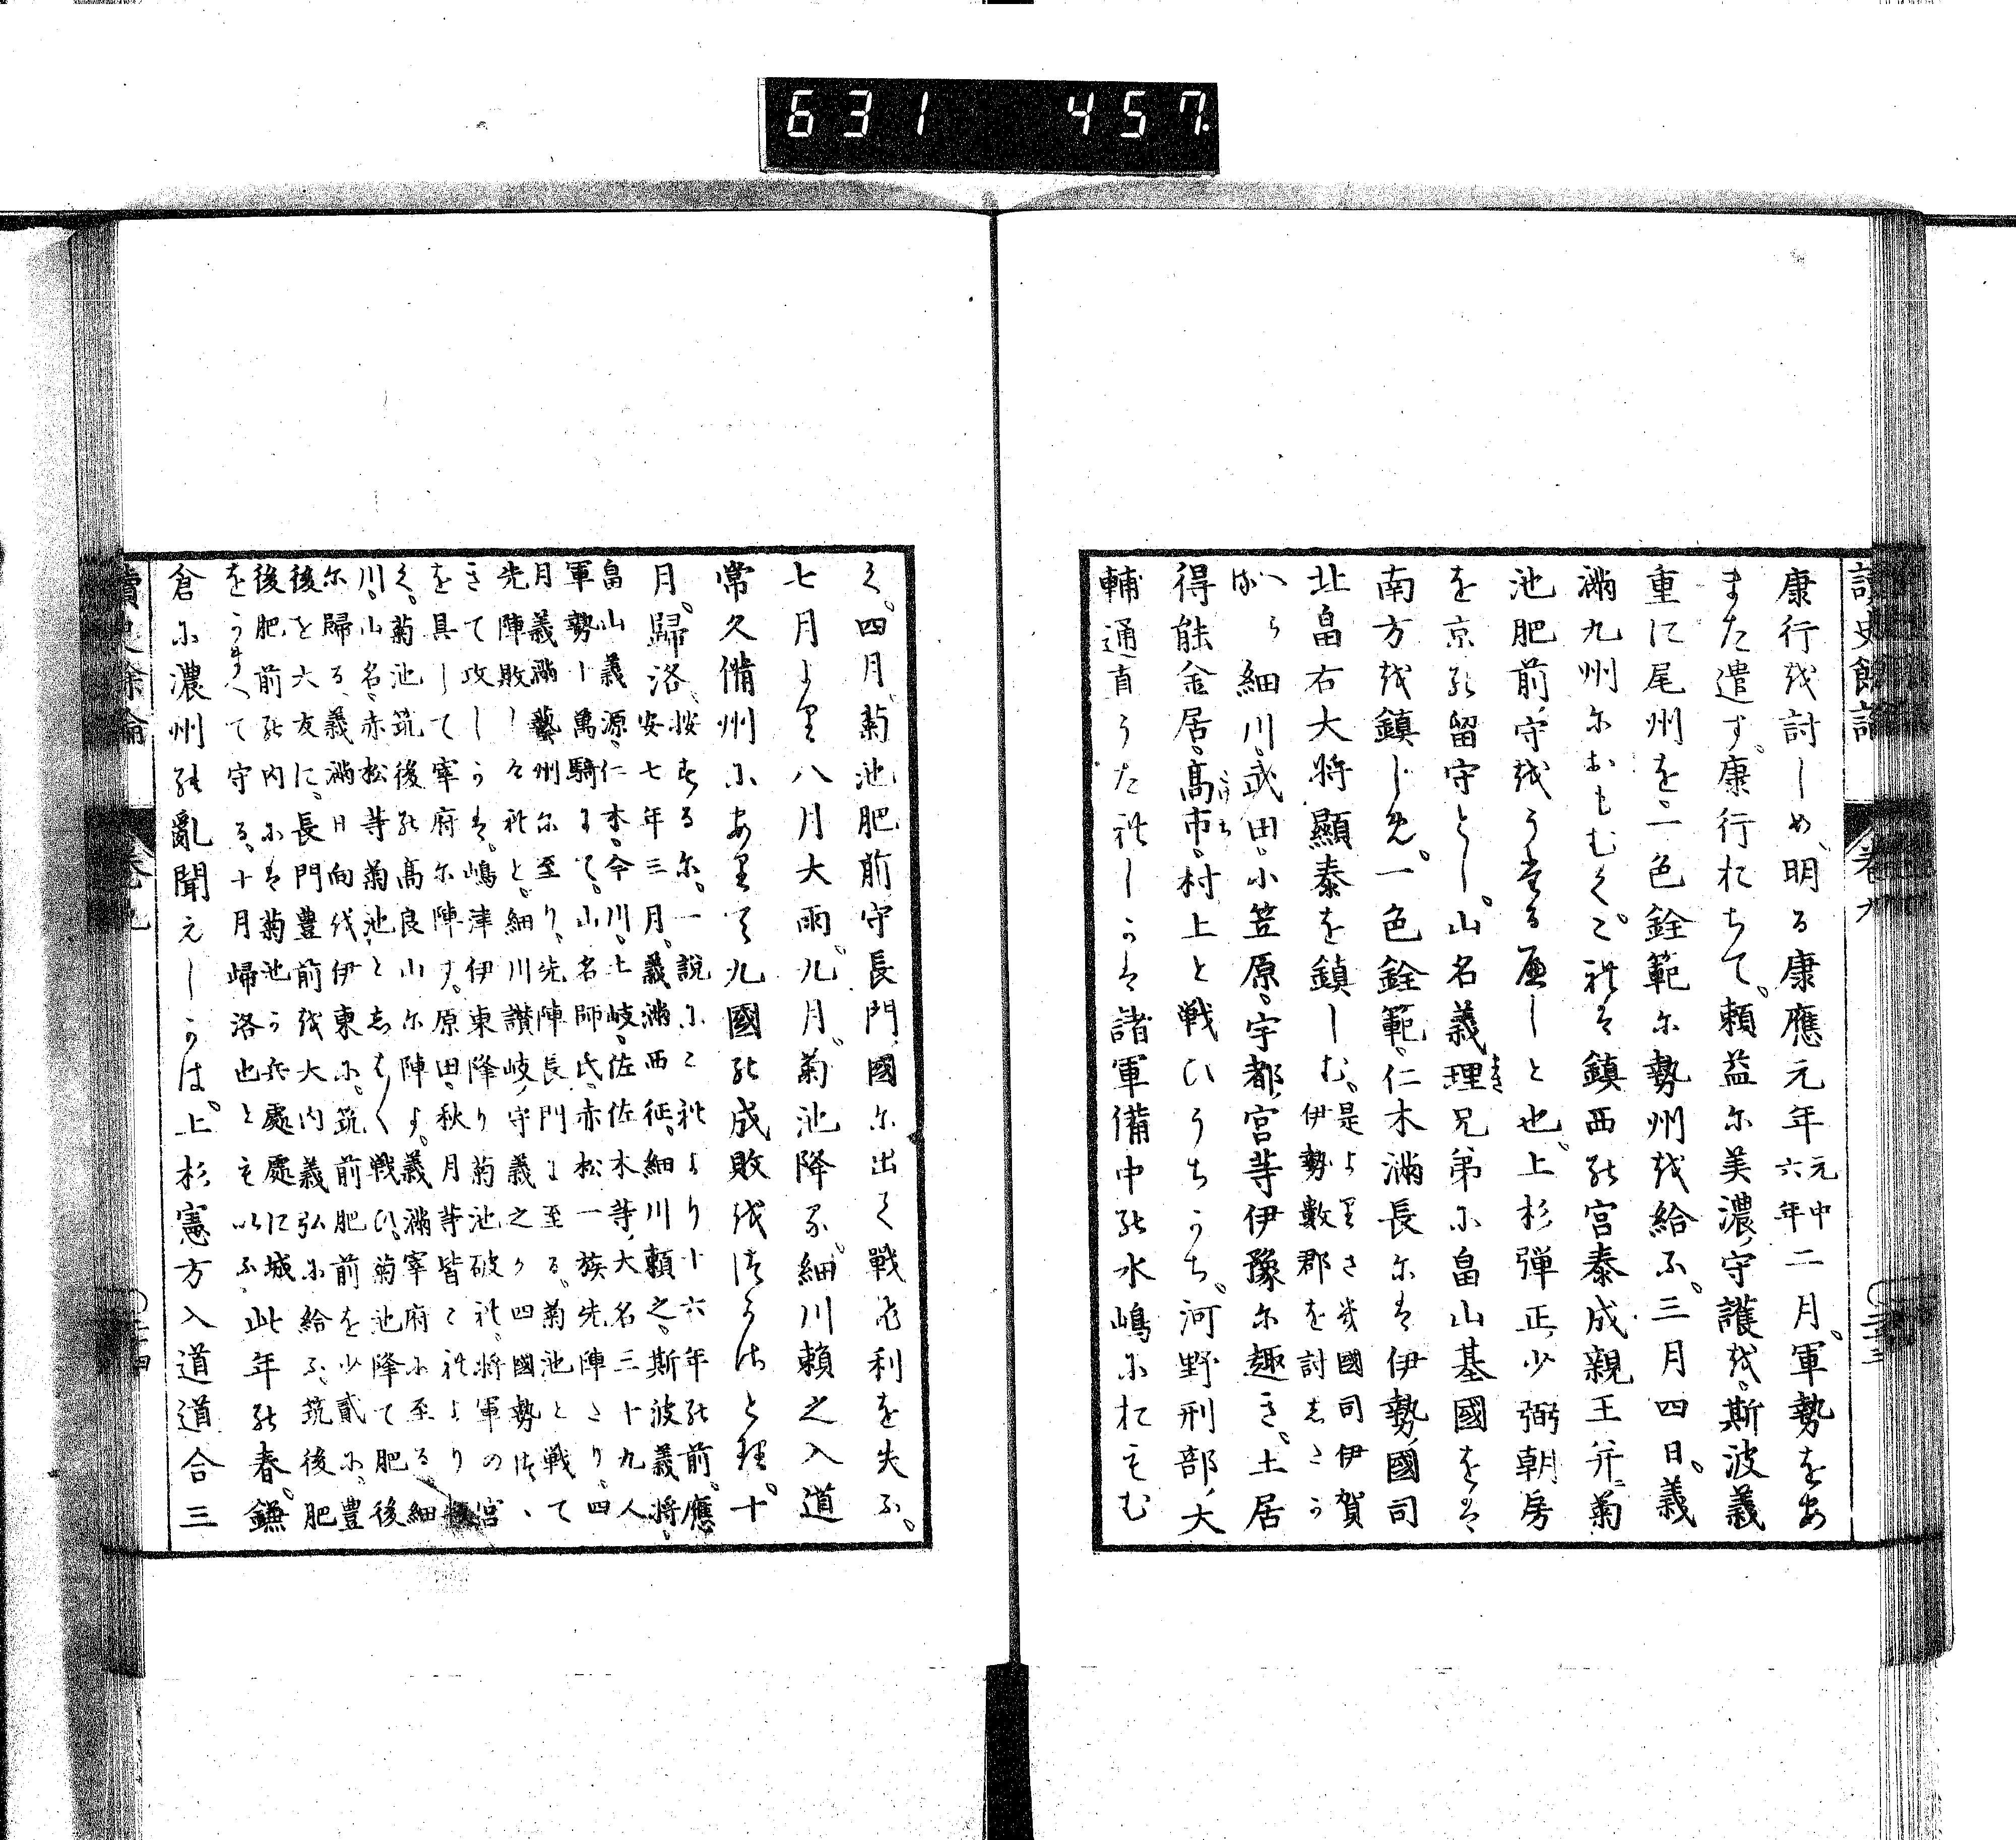 631 457.
讀史餘論 卷九
康行を討しめ、明る康應元年元中六年二月。軍勢をあ
また遣す。康行おちて。頼益に美濃ノ守護を。斯波義
重に尾州を一色詮範に勢州を給ふ。三月四日。義
満九州におもむく。これは鎮西の宮泰成親王并菊
池肥前ノ守をうたるべしと也。上杉弾正ノ少弼朝房
を京の留守とし。山名義理兄弟に畠山基國をば
南方を鎮じめ。一色詮範、仁木満長には伊勢ノ國司
北畠右大将顯泰を鎮しむ。是よりさき國司伊賀
伊勢數郡を討したがへり
細川。武田。小笠原。宇都ノ宮等伊豫に趣き。土居
得能金居。髙市。村上と戦ひうちかち。河野刑部ノ大
輔通直うたれしかば諸軍備中の水嶋におもむ
く。四月。菊池肥前守長門ノ國に出て戰ひ利を失ふ。
七月より八月大雨。九月。菊池降る。細川頼之入道
常久備州にありて九國の成敗をつかさどる。十
月。歸洛。按ずるに。一説にこれより十六年の前。應
安七年三月。義満西征。細川頼之。斯波義將。
畠山義源。仁木。今川。土岐。佐佐木等ノ大名三十九人
軍勢十萬騎にて。山名師氏。赤松一族先陣たり。四
月義満藝州に至り。先陣長門に至る。菊池と戦て
先陣敗しぬれと。細川讃岐ノ守義之が四國勢つゞ
きて攻しかば。嶋津伊東降り菊池破れ。將軍の宮
を具して宰府に陣す。原田。秋月等皆これより
く。菊池筑後の髙良山に陣す。義満宰府に至る細
川。山名。赤松等菊池としばしば戦ひ。菊池降て肥後
に歸る。義満日向を伊東に。筑前肥前を少貳に。豊
後を大友に。長門豊前を大内義弘に給ふ。筑後肥
後肥前の内には菊池が兵處處に城
をかまへて守る。十月歸洛也ともいふ。此年の春。鎌
倉に濃州の亂聞えしかば。上杉憲方入道道合三
讀史餘論 卷九